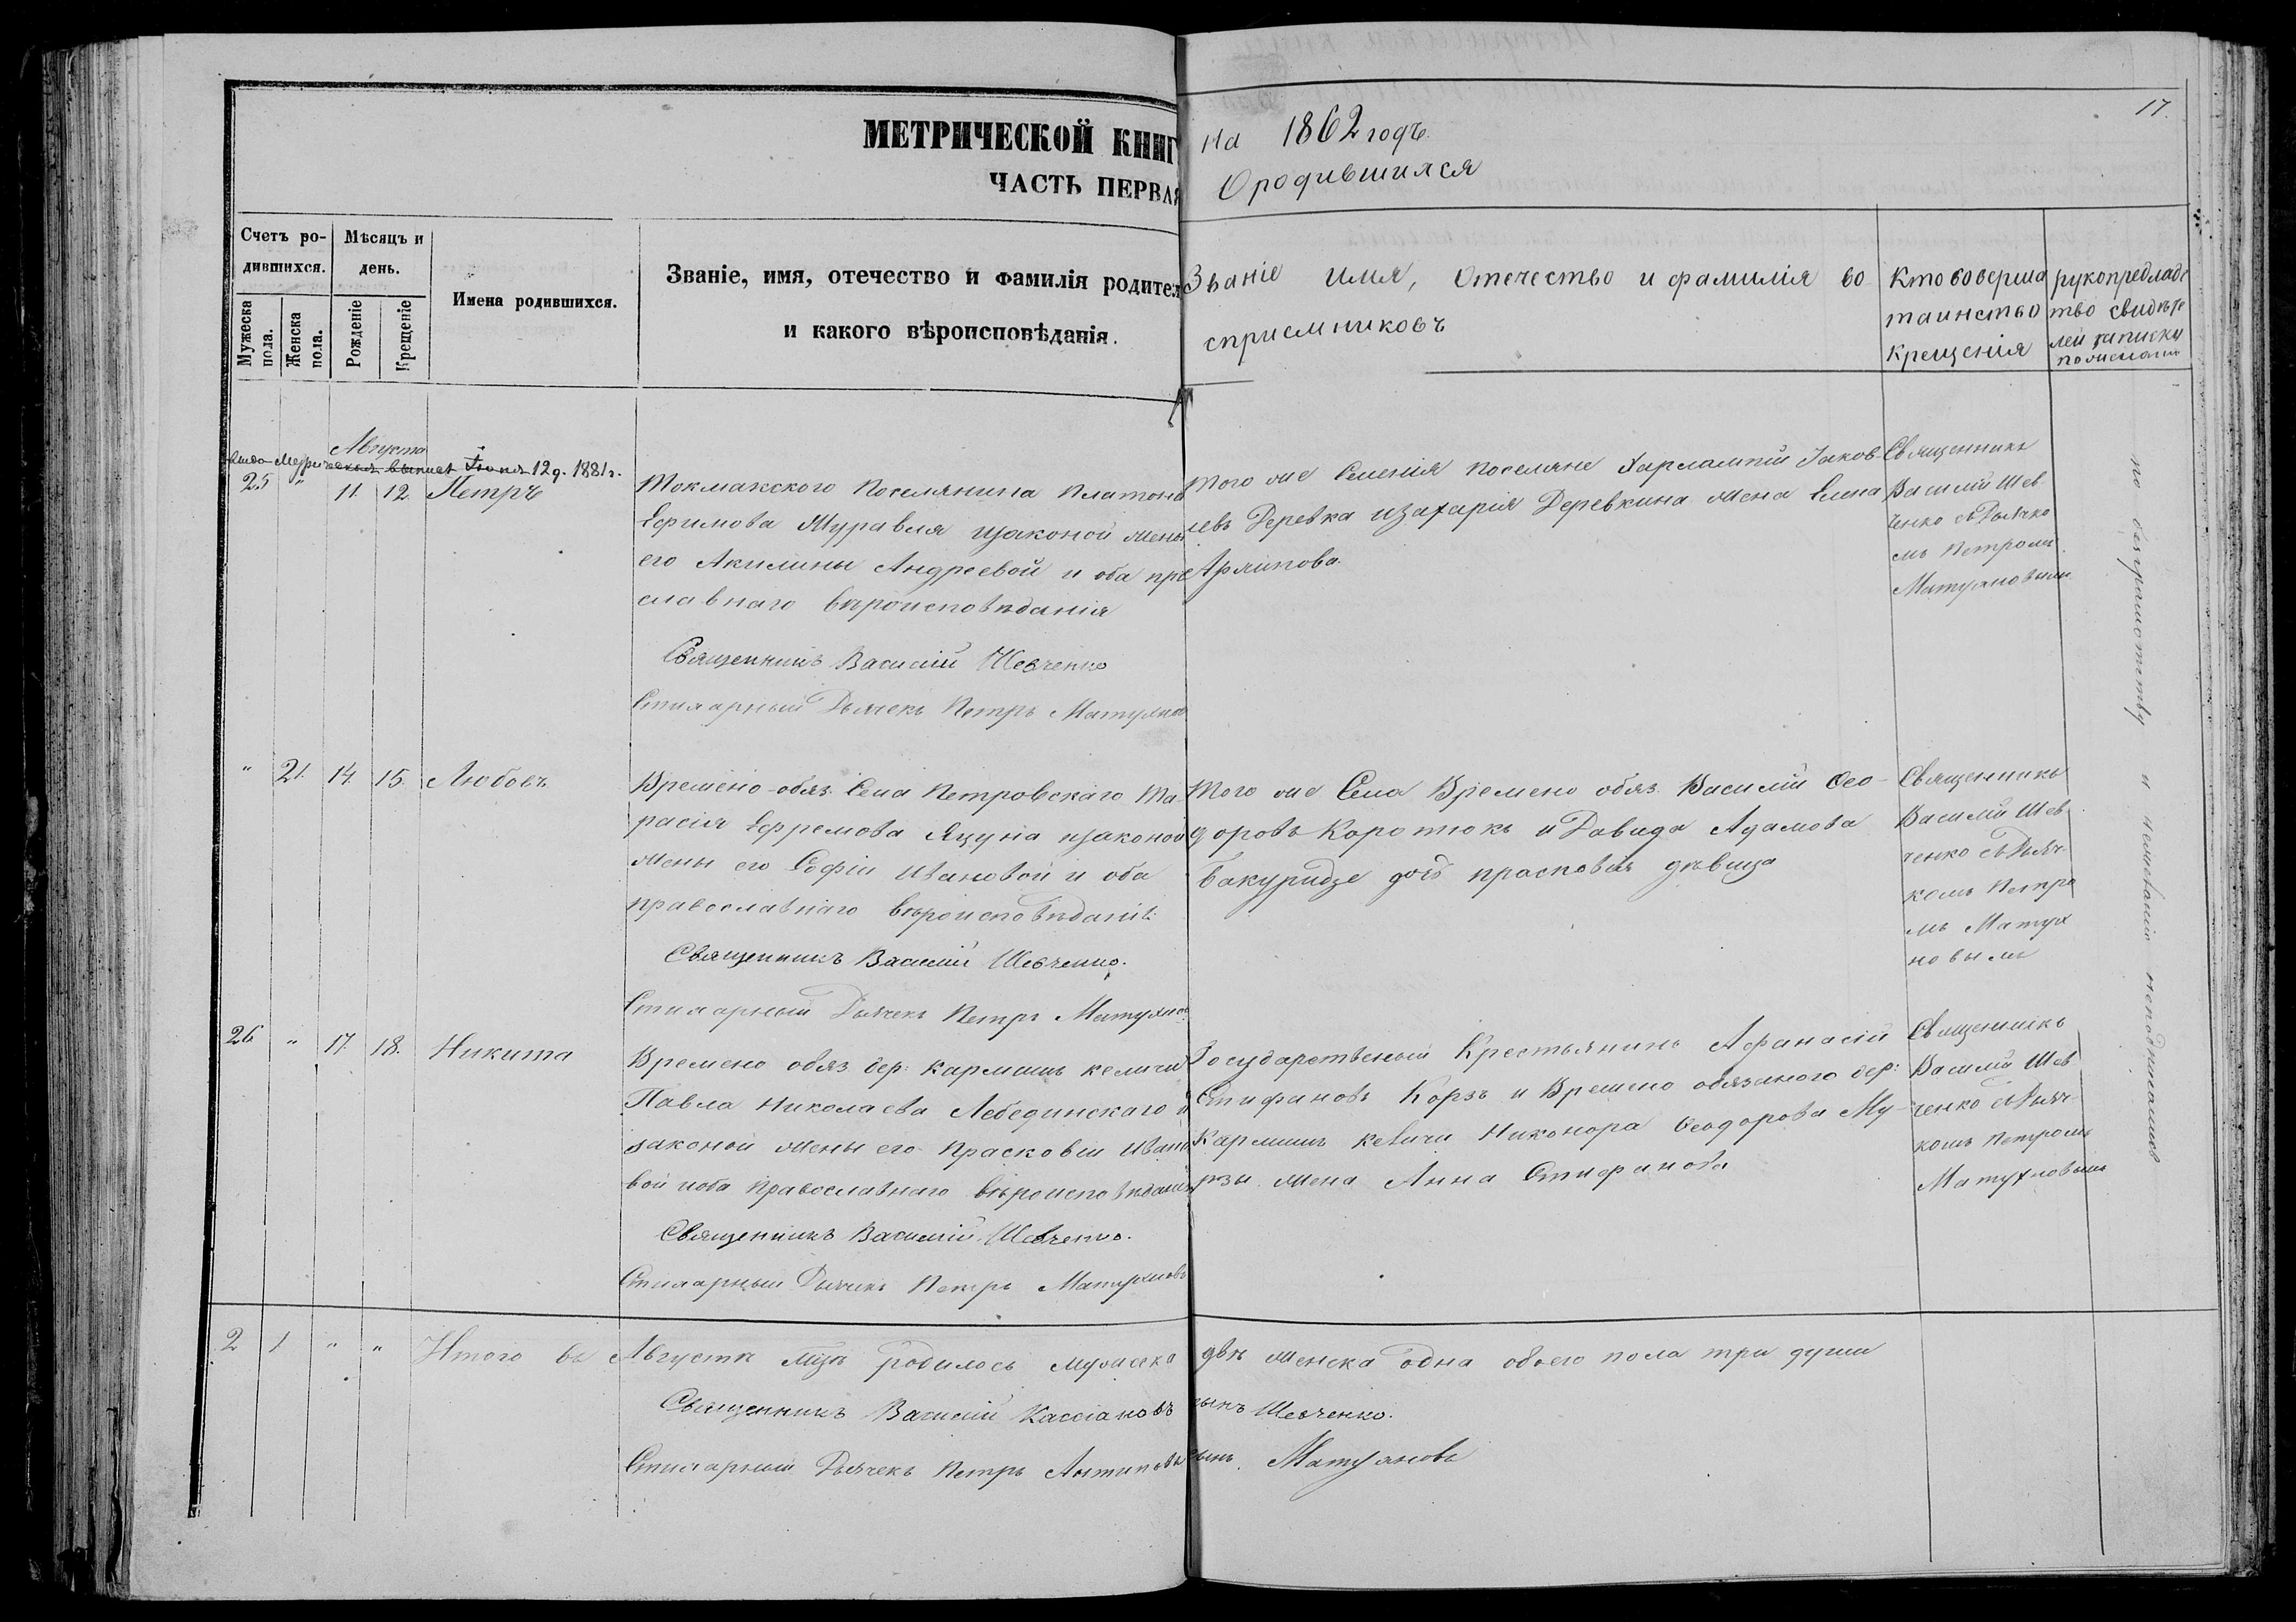 МЕТРИЧЕСКОЙ КНИГ
ЧАСТЬ ПЕРВАЯ
На 1862 годъ.
О родившихся
17.
Счетъ ро-
дившихся.
Мужеска пола.
Женска пола.
Мѣсяцъ и
день.
Рожденіе
Крещеніе
Имена родившихся.
Званіе, имя, отечество и фамилія родител
и какого вѣроисповѣданія.
Званіе имя, Отечество и фамилія во
сприемниковъ
Кто соверша
таинство
Крещенія
рукопредладе
тво свидѣте
лей записки
Августа
12 д. 1881 г.
25 " 11. 12. Петръ
Токмакского Поселянина Платона
Ефимова Муравля изаконой жены
его Акилины Андреевой и оба пра
славнаго вѣроисповѣданія
Священникъ Василій Шевченко
Дьячекъ Петръ Матухнов
Того же Селенія поселяне Харлампій Іаков-
левъ Деревка изахарія Деревкина жена Елена
Архипова
Священникъ
Василій Шев
ченко съ Дьячко
мъ Петромъ
Матухновымъ
" 21. 14. 15. Любовъ
Времено-обяз. Села Петровскаго Та-
расія Ефремова Яцуна изаконой
жены его Софіи Ивановой и оба
православнаго вѣроисповѣданія
Священникъ Василій Шевченко.
Дьячекъ Петръ Матухнов
Того же Села Времено обяз. Василій Фео-
доровъ Коротюкъ и Давида Адамова
Бакуридзе дочь прасковья дѣвица
Священникъ
Василій Шев
ченко съ Дьяч-
комъ Петро
мъ Матух
новымъ
26 " 17. 18. Никита
Времено обяз. дер: кармишъ келичи
Павла Николаева Лебединскаго и
законой жены его Прасковіи Ивано
вой иоба Православнаго вѣроисповѣданія
Священникъ Василій Шевченко.
Дьячекъ Петръ Матухновъ
Государственый Крестьянинъ Афанасій
Стифановъ Корзъ и Времено обязаного дер:
Кармишъ келичи Никонора Феодорова Му-
рзы жена Анна Стифанова
Священникъ
Василій Шев
ченко съ Дьяч-
комъ Петромъ
Матухновымъ
по безграмотству и неименію
2 1 " " Итого въ Августѣ мцѣ родилось мужеска двѣ женска одна обоего пола три души
Священникъ Василій Кассіановъ сынъ Шевченко.
Дьячекъ Петръ Антиповъ сынъ Матухновъ